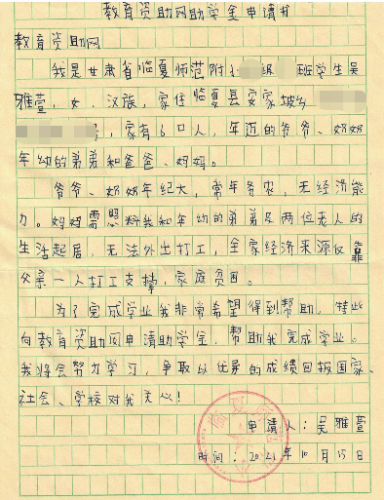 教育资助网助学金申请书
教育资助网
我是甘肃省临夏师范附小 级 班学生吴
雅萱，女，汉族，家住临夏县安家坡乡
号，家有6口人，年迈的爷爷、奶奶
年幼的弟弟和爸爸、妈妈。
爷爷、奶奶年纪大，常年务农，无经济能
力。妈妈需照料我和年幼的弟弟及两位老人的
生活起居，无法外出打工，全家经济来源仅靠
父亲一人打工支撑，家庭贫困。
为了完成学业我非常希望得到帮助，特此
向教育资助网申请助学金，帮助我完成学业。
我将会努力学习，争取以优异的成绩回报国家、
社会、学校对我关心！
申请人：吴雅萱
时间：2021年10月15日